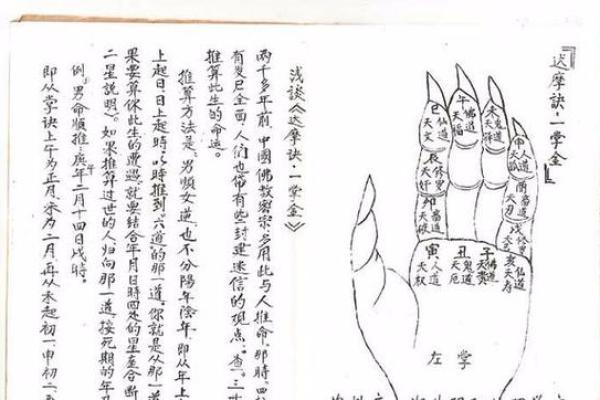 『达摩诀·一掌金』
巳仙道天文
午佛道天福
未鬼道天祥
申人道天孤
辰修罗天奸
酉畜道天刃
卯畜道天破
戌修罗天
寅人道天权
丑鬼道天厄
子佛道天贵
亥仙道天寿
左掌
浅谈《达摩诀·一掌金》
两千多年前,中國佛教密宗,多用此与人推命。那時,四
有 全面,人们也带有些封建迷信的观点。查。三世
推算此生的命运。
推算方法是:男顺女逆,也不分陽年陰年,即从年上
上起日,日上起時,以時推到"六道"的那一道,你就是从那一道
果要算你此生的遭遇,就要结合年月日時四处的星座合断
二星説明)。如果推算过世的人,归向那一道,按死期的年
例。男命顺推,庚午年二月十四日戌時。
即从掌诀上午为正月,未为二月,再从未起初一,申初二,